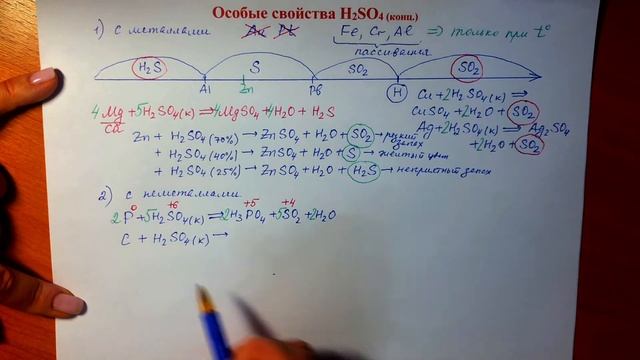 Особые свойства H₂SO₄ (конц.)
1) с металлами Au Pt Fe, Cr, Al ⇒ только при t°
пассивация
H₂S S SO₂ SO₂
Al Zn Pb H
Cu + 2H₂SO₄(к) ⇒
CuSO₄ + 2H₂O + SO₂
4Mg + 5H₂SO₄(к) ⇒ 4MgSO₄ + 4H₂O + H₂S
Ca
Ag + 2H₂SO₄(к) ⇒ Ag₂SO₄
+ 2H₂O + SO₂
Zn + H₂SO₄(70%) → ZnSO₄ + H₂O + SO₂ → резкий запах
+ H₂SO₄(40%) → ZnSO₄ + H₂O + S → желтый цвет
+ H₂SO₄(25%) → ZnSO₄ + H₂O + H₂S → неприятный запах
2) с неметаллами
0 +6 +5 +4
2P + 5H₂SO₄(к) ⇒ 2H₃PO₄ + 5SO₂ + 2H₂O
C + H₂SO₄(к) →